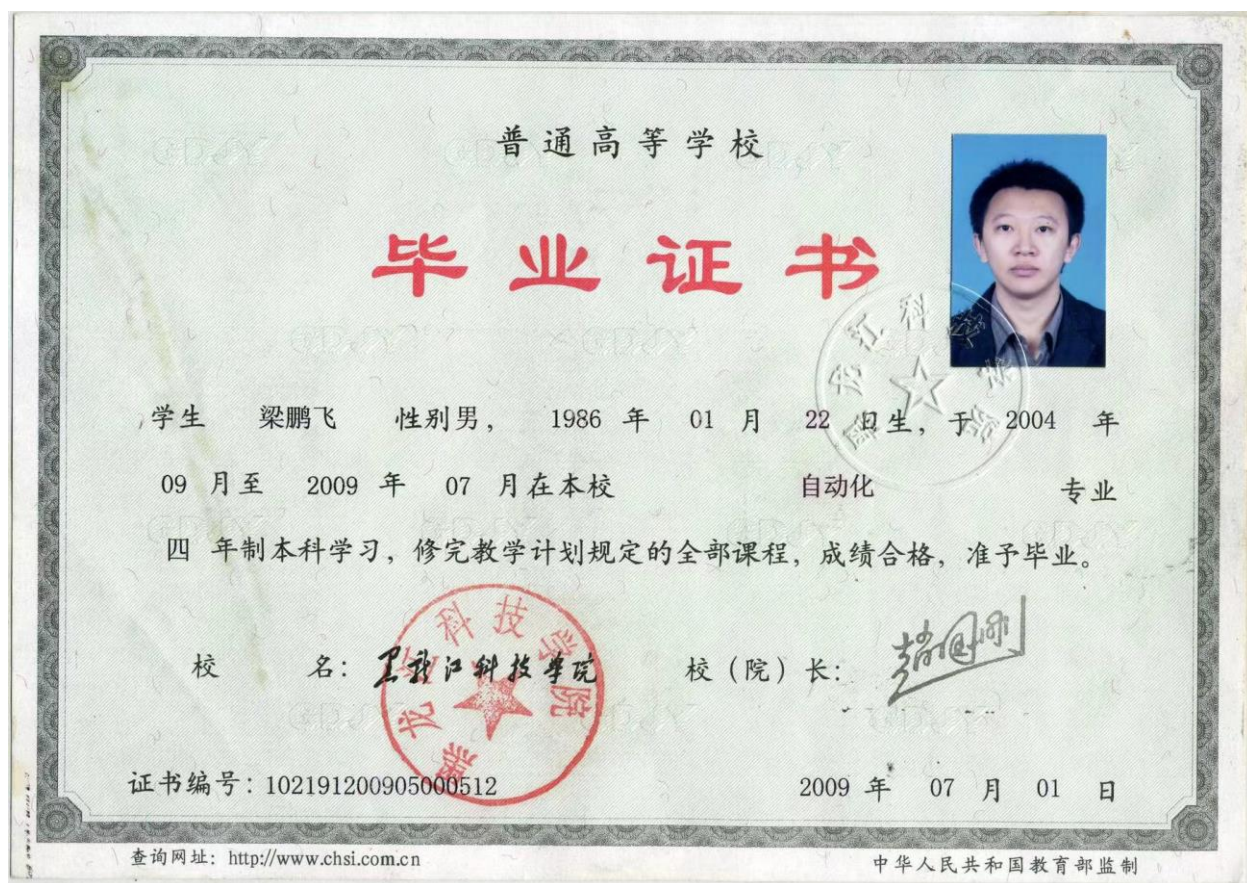 普通高等学校
毕业证书
学生 梁鹏飞 性别男, 1986 年 01 月 22 日生, 于 2004 年
09 月至 2009 年 07 月在本校 自动化 专业
四 年制本科学习, 修完教学计划规定的全部课程, 成绩合格, 准予毕业。
校 名: 黑龙江科技学院 校 (院) 长: 赵国刚
黑龙江科技学院
证书编号: 102191200905000512 2009 年 07 月 01 日
查询网址: http://www.chsi.com.cn 中华人民共和国教育部监制